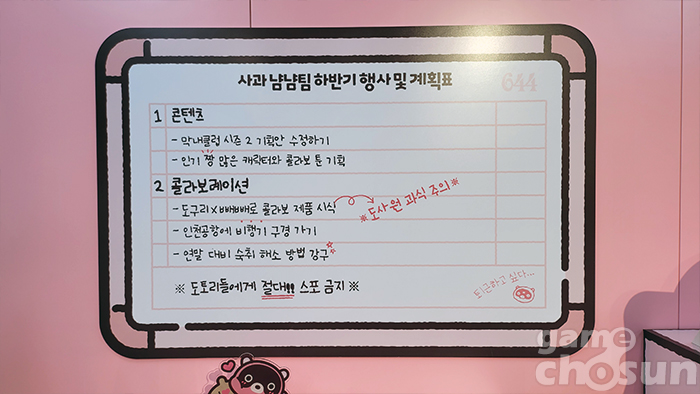 사과 냠냠팀 하반기 행사 및 계획표
644
1 콘텐츠
- 막내클럽 시즌 2 기획안 수정하기
- 인기 짱 많은 캐릭터와 콜라보 툰 기획
2 콜라보레이션
- 도구리 x 빼빼로 콜라보 제품 시식
※도사원 과식 주의※
- 인천공항에 비행기 구경 가기
- 연말 대비 숙취 해소 방법 강구
※ 도토리들에게 절대!! 스포 금지 ※
퇴근하고 싶다...
game
chosun